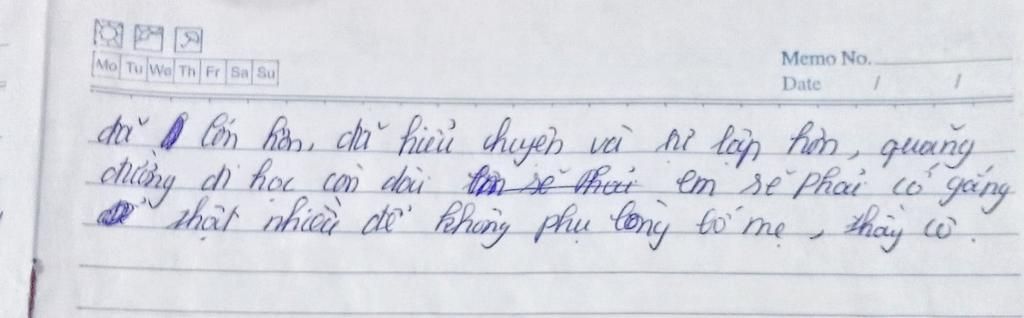 Mo Tu We Th Fr Sa Su
Memo No.
Date / /
đã lớn hơn, đã hiểu chuyện và tự lập hơn, quãng
đường đi học còn dài em sẽ phải cố gắng
thật nhiều để không phụ lòng bố mẹ, thầy cô.